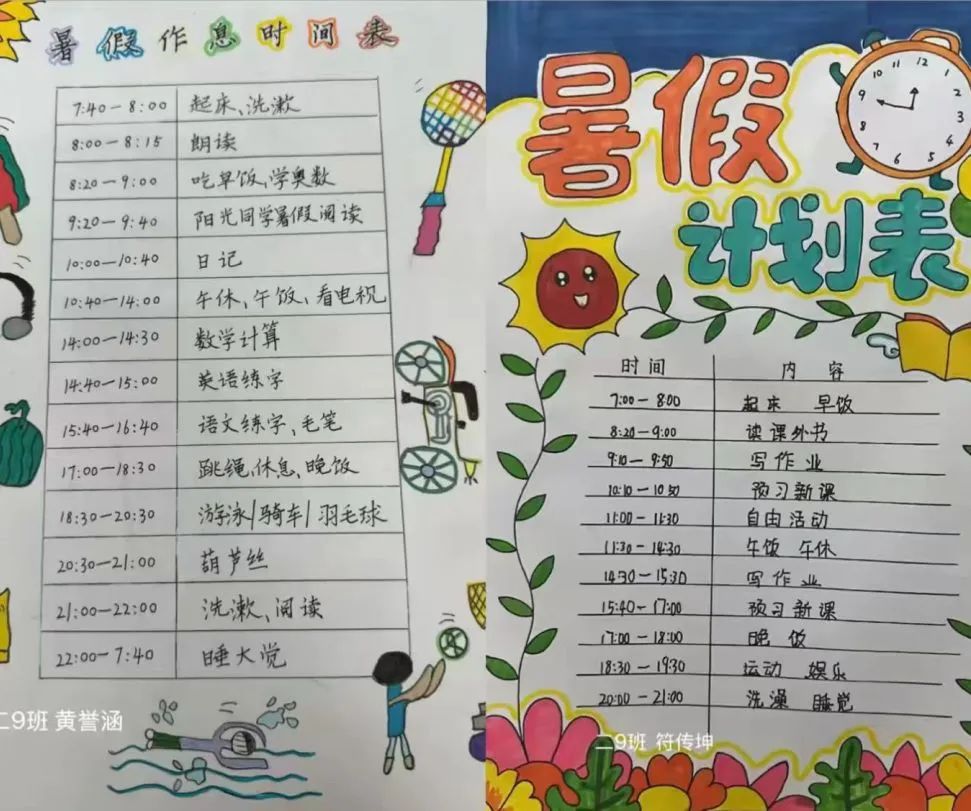 暑假作息时间表
7:40-8:00 起床、洗漱
8:00-8:15 朗读
8:20-9:00 吃早饭、学奥数
9:20-9:40 阳光同学暑假阅读
10:00-10:40 日记
10:40-14:00 午休、午饭、看电视
14:00-14:30 数学计算
14:40-15:00 英语练字
15:40-16:40 语文练字、毛笔
17:00-18:30 跳绳、休息、晚饭
18:30-20:30 游泳/骑车/羽毛球
20:30-21:00 葫芦丝
21:00-22:00 洗漱、阅读
22:00-7:40 睡大觉
二9班 黄誉涵
暑假
计划表
12
1
2
3
4
5
6
7
8
9
10
11
时间 内容
7:00-8:00 起床 早饭
8:20-9:00 读课外书
9:10-9:50 写作业
10:10-10:50 预习新课
11:00-11:30 自由活动
11:30-14:30 午饭 午休
14:30-15:30 写作业
15:40-17:00 预习新课
17:00-18:00 晚饭
18:30-19:30 运动 娱乐
20:00-21:00 洗澡 睡觉
二9班 符传坤